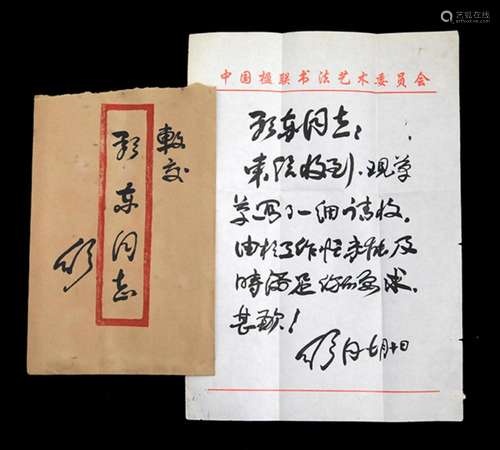 艺狐在线
中国楹联书法艺术委员会
东同志：
来信收到，现草
草写了一请收。
由於工作忙未能及
時满足你的要求，
甚歉！
七月十日
交
东同志